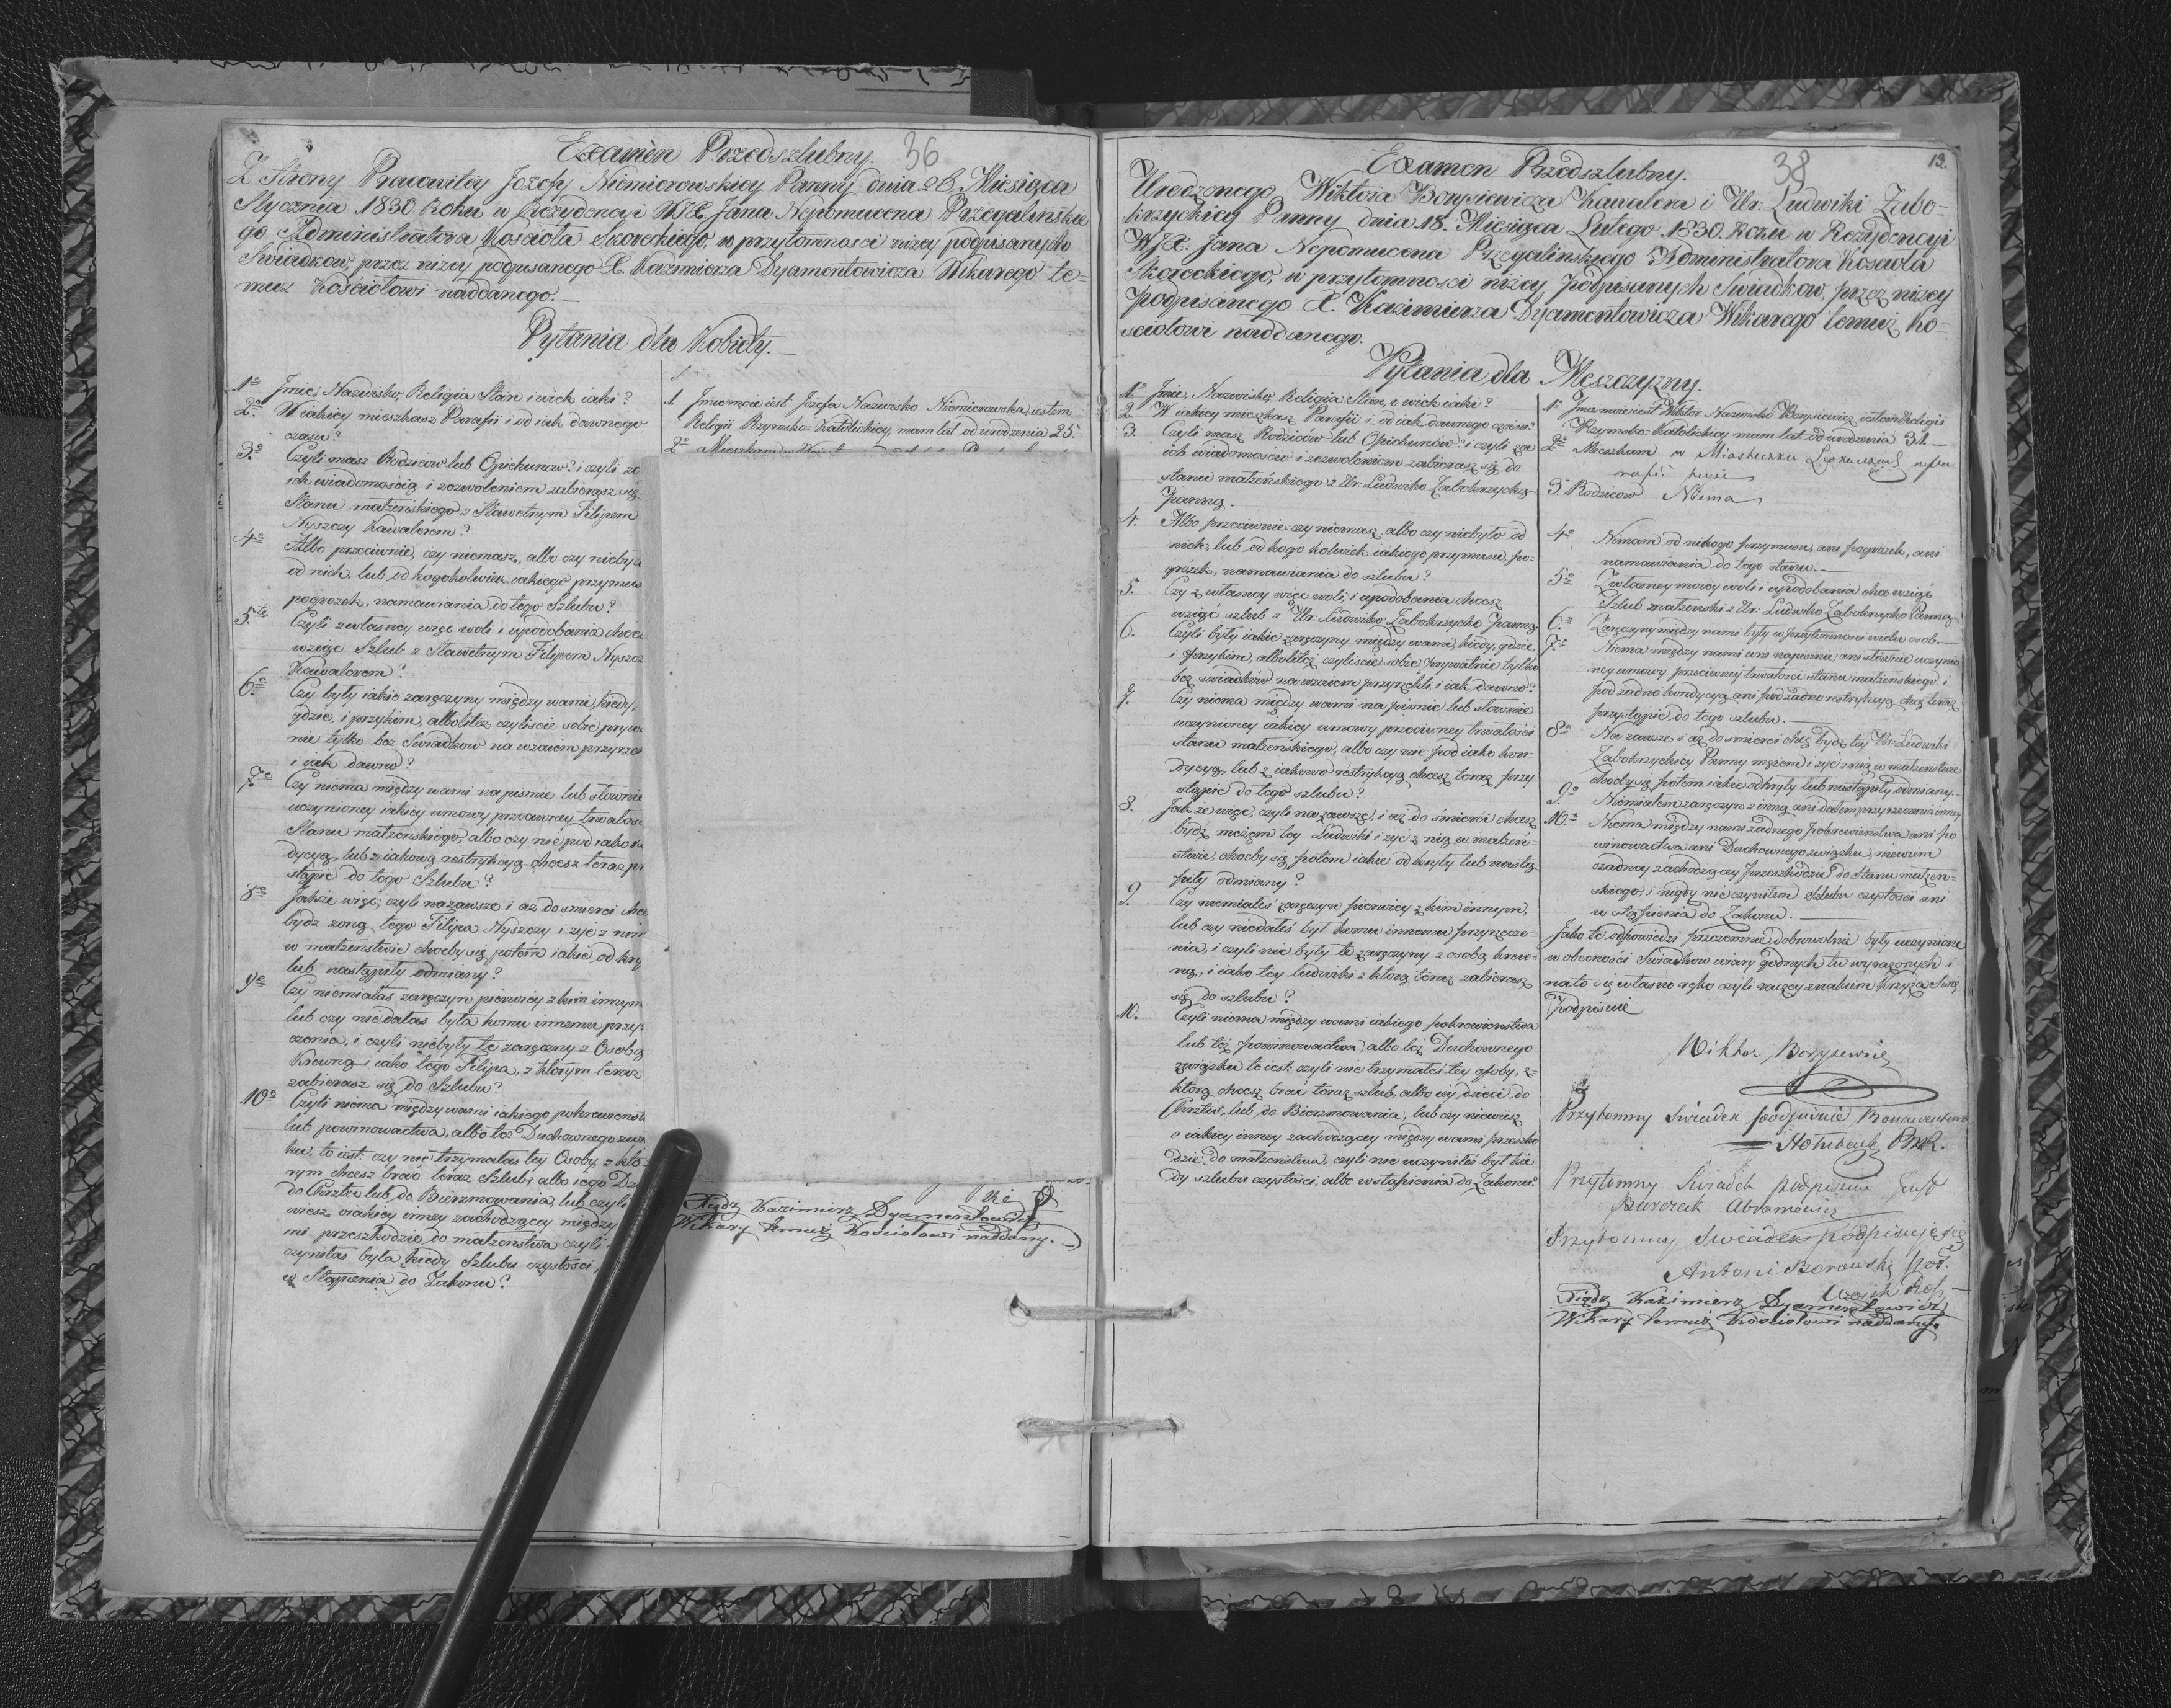 Examen Przedszlubny. 36
Z Strony Pracowitey Jozefy Niemierowskiey Panny dnia 26. Miesiąca
Stycznia 1830 Roku w Rezydencyi WJX. Jana Nepomucena Przegalinskie
go Administratora Kościoła Skoreckiego, w przytomnosci niżey podpisanych
Swiadkow, przez niżey podpisanego X. Kazimierza Dyamentowicza Wikarego te=
muz Kościołowi naddanego.—
Pytania dla Kobiety.—
1o Jmie, Nazwisko, Religia Stan i wiek iaki?
2o W iakiey mieszkasz Parafii i od iak dawnego
czasu?
3o Czyli masz Rodzicow lub Opiekunow? i czyli za
ich wiadomością i zezwoleniem zabierasz się
Stanu małżeńskiego z Sławetnym Filipem
Nyszczy Kawalerem?
4o Albo przeciwnie, czy niemasz, albo czy nieby
od nich, lub od kogokolwiek iakiego przymu
pogrozek, namawiania do tego Szlubu?
5te Czyli zwłasney więc woli i upodobania chce
wziąć Szlub z Sławetnym Filipem Nyszcz
Kawalerem?
6o Czy były iakie zaręczyny między wami, kiedy,
gdzie, i przykim, albolitez czyliscie sobie pryw
nie tylko bez Swiadkow na wzaiem przyrze
i iak dawno?
7o Czy niema między wami na pismie lub słownie
uczynioney iakiey umowy przeciwney trwałos
Stanu małzenskiego, albo czy nie pod iako ko
dycyą, lub z iakową restrykcyą chcesz teraz pr
stąpic do tego Szlubu?
8o Jakże więc, czyli nazawsze i aż do smierci chce
bydz zoną tego Filipa Nyszczy i zyc z nim
w małzenstwie choćby się potem iakie odkry
lub nastąpiły odmiany?
9o Czy niemiałas zaręczyn pierwiey z kim innym
lub czy nie dałas była komu innemu przy
czenia, i czyli niebyły te zaręczny z Osobą
Krewną i iako tego Filipa, z ktorym teraz
zabierasz się do Szlubu?
10o Czyli niema między wami iakiego pokrewienst
lub powinowactwa, albo też Duchownego zwią
ku, to iest: czy nie trzymałas tey Osoby z kto
rym chcesz brać teraz Szlub, albo iego Dz
do Chrztu lub do Bierzmowania, lub czyli
wiesz o iakiey inney zachodzącey między
mi przeszkodzie do małzenstwa czyli
czyniłas była kiedy Szlubu czystości,
w Stąpienia do Zakonu?
1 Jmie moie iest Jozefa Nazwisko Niemierowska, iestem
Religii Rzymsko=Katolickiey, mam lat od urodzenia 25.
2o Mieszkam
Xiądz Kazimierz Dyamentowicz
Wikary temuż Kościołowi naddany.
Examen Przedszlubny. 38 13.
Urodzonego Wiktora Borysiewicza Kawalera i Ur. Ludwiki Zabo=
krzyckiey Panny dnia 18. Miesiąca Lutego 1830. Roku w Rezydencyi
WJX: Jana Nepomucena Przegalinskiego Administratora Koscioła
Skoreckiego, w przytomnosci niżey podpisanych Swiadkow, przez niżey
podpisanego X. Kazimierza Dyamentowicza Wikarego temuż Ko=
sciołowi naddanego.
Pytania dla Meszczyzny.
1o Jmie, Nazwisko, Religia Stan, i wiek iaki?
2 W iakiey mieszkasz Parafii i od iak dawnego czasu?
3. Czyli masz Rodzicow lub Opiekunow? i czyli za
ich wiadomoscią i zezwoleniem zabierasz się do
stanu małżeńskiego z Ur. Ludwiką Zabokrzycką
Panną.
4. Albo przeciwnie czy niemasz, albo czy niebyło od
nich, lub od kogo kolwiek iakiego przymusu, po=
grozek, namawiania do szlubu?
5. Czy z własney więc woli, i upodobania chcesz
wziąść szlub z Ur. Ludwiką Zabokrzycką Panną.
6. Czyli były iakie zaręczyny między wami, kiedy, gdzie
i przykim, albolitez czyliscie sobie prywatnie tylko
bez swiadków na wzaiem przyrzekli, i iak dawno?
7. Czy niema między wami na pismie lub słownie
uczynioney iakiey umowy przeciwney trwałości
stanu małżenskiego, albo czy nie pod iako kon=
dycyą, lub z iakowo restrykcyą chcesz teraz przy
stąpic do tego szlubu?
8. Jak że więc, czyli nazawsze, i aż do śmierci chcesz
bydz męzem tey Ludwiki i zyć z nią w małzeń=
stwie, choćby się potem iakie odkryły lub nastą
piły odmiany?
9. Czy niemiałeś zaręczyn pierwiey z kim innym,
lub czy niedałeś był komu innemu przyrzecze=
nia, i czyli nie były te zaręczyny z osobą krew=
ną, i iako tey ludwiki z ktorą teraz zabierasz
się do szlubu?
10. Czyli niema między wami iakiego pokrewieństwa
lub też powinowactwa, albo też Duchownego
związku to iest: czyli nie trzymałeś tey osoby, z=
ktorą chcesz brać teraz szlub, albo iey dzieci do
Chrztu, lub do Bierzmowania, lub czy niewiesz
o iakiey inney zachodzącey między wami przeszko
dzie do małzenstwa, czyli nie uczyniłeś był kie
dy szlubu czystości, albo wstąpienia do Zakonu?
1o Jmie moie iest Wiktor Nazwisko Borysiewicz iestem Religii
Rzymsko=Katolickiey mam lat od urodzenia 31.—
2o Mieszkam w Miasteczku
3 Rodzicow Niema
4o Nimam od nikogo przymusu, ani pogrozek, ani
namawiania do tego stanu.—
5o Zwłasney moiey woli i upodobania chce wziąść
Szlub małzenski z Ur. Ludwiko Zabokrzycko Panną
6o Zaręczyny między nami były w przytomnosci wielu osob.—
7o Niema między nami ani napismie, ani słownie uczynio
ney umowy przeciwney trwałosci stanu małzenskiego i
pod żadno kondycyą ani pod żadno restrykcyą chcę teraz
przystąpić do tego szlubu.—
8o Na zawsze, i aż do smierci chcę bydź tey Ur. Ludwiki
Zabokrzyckiey Panny męzem i zyć znią w małzenstwie
choćby się potem iakie odkryły lub nastąpiły odmiany.
9o Niemiałem zaręczyn z inną, ani dałem przyrzeczenia inney
10.o Niema między nami żadnego pokrewieństwa ani po
winowactwa ani Duchownego związku, niewiem
ożadney zachodzącey przeszkodzie do Stanu małzen=
skiego, i nigdy nie czyniłem Szlubu czystości ani
wstąpienia do Zakonu.—
Jako te odpowiedzi przezemnie dobrowolnie były uczynione
w obecności Świadkow wiary godnych tu wyrazonych i
nato się własno ręko czyli raczey znakiem krzyża Swię
podpisuie
Wiktor Borysewicz
Przytomny Swiadek podpisuie
Przytomny Swiadek podpisuie Jozef
Abramowicz
Przytomny Swiadek podpisuję się
Antoni Borowski
Xiądz Kazimierz Dyamentowicz
Wikary temuż Kościołowi naddany.